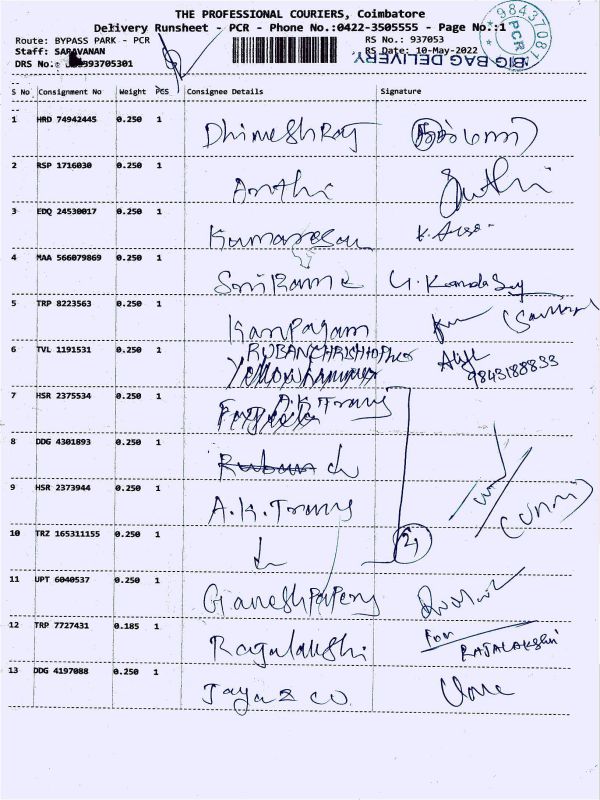 THE PROFESSIONAL COURIERS, Coimbatore
Delivery Runsheet - PCR - Phone No.:0422-3505555 - Page No.:1
Route: BYPASS PARK - PCR RS No.: 937053
Staff: SARAVANAN RS Date: 10-May-2022
DRS No.: 393705301
BIG BAG DELIVERY
PCR
S No Consignment No Weight PCS Consignee Details Signature
1 HRD 74942445 0.250 1 Dhinesh Raj
2 RSP 1716030 0.250 1 Arthi
3 EDQ 24530017 0.250 1 Kumaresan
4 MAA 566079869 0.250 1 Sri Ram
5 TRP 8223563 0.250 1 Kanpagam
6 TVL 1191531 0.250 1 RUBANCHRISHTOPHER
9843188833
7 HSR 2375534 0.250 1 A.K. Trans
8 DDG 4301893 0.250 1
9 HSR 2373944 0.250 1 A.K. Trans
10 TRZ 165311155 0.250 1
11 UPT 6040537 0.250 1 Ganesh
12 TRP 7727431 0.185 1 Ragalakshi For RAJALAKSHI
13 DDG 4197088 0.250 1 Jaya & co.